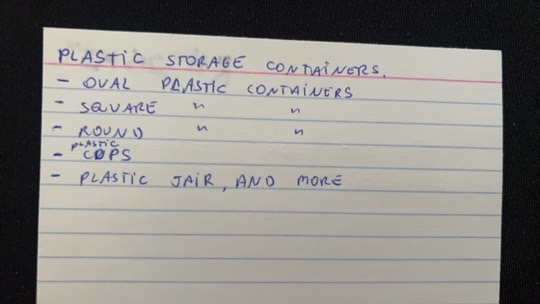 PLASTIC STORAGE CONTAINERS.
- OVAL PLASTIC CONTAINERS
- SQUARE " "
- ROUND " "
- PLASTIC CUPS
- PLASTIC JAIR, AND MORE